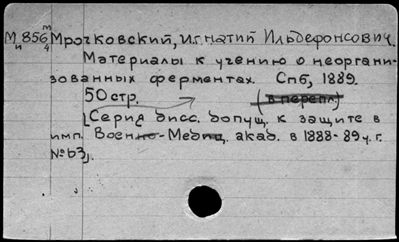 М 856 m/4 Мрочковский, Игнатий Ильдефонсович.
и
Материалы к учению о неоргани-
зованных ферментах. Спб, 1889.
50 стр. (в перепл.)
[Серия дисс. допущ. к защите в
имп. Военно-Медиц. акад. в 1888-89 у. г.
№ 63].